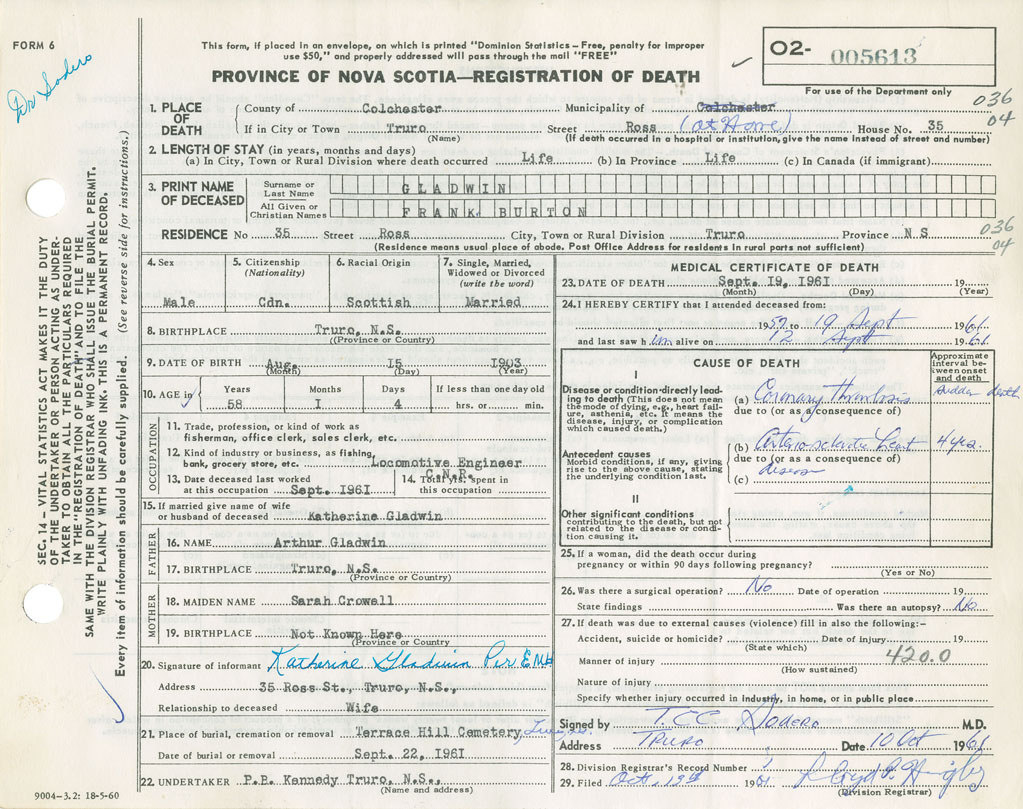 FORM 6
Dr Sodero
This form, if placed in an envelope, on which is printed "Dominion Statistics – Free, penalty for improper
use $50," and properly addressed will pass through the mail "FREE"
PROVINCE OF NOVA SCOTIA—REGISTRATION OF DEATH
O2- 005613
For use of the Department only
036
04
1. PLACE OF DEATH
County of Colchester Municipality of Colchester
If in City or Town Truro Street Ross (at Home) House No. 35
(Name) (If death occurred in a hospital or institution, give the name instead of street and number)
2. LENGTH OF STAY (in years, months and days)
(a) In City, Town or Rural Division where death occurred Life (b) In Province Life (c) In Canada (if immigrant)
3. PRINT NAME OF DECEASED
Surname or Last Name GLADWIN
All Given or Christian Names FRANK BURTON
RESIDENCE No 35 Street Ross City, Town or Rural Division Truro Province N S
036
04
(Residence means usual place of abode. Post Office Address for residents in rural parts not sufficient)
4. Sex
Male
5. Citizenship
(Nationality)
Cdn.
6. Racial Origin
Scottish
7. Single, Married,
Widowed or Divorced
(write the word)
Married
8. BIRTHPLACE Truro, N.S.
(Province or Country)
9. DATE OF BIRTH Aug. 15 1903
(Month) (Day) (Year)
10. AGE in
Years Months Days If less than one day old
58 1 4 hrs. or min.
OCCUPATION
11. Trade, profession, or kind of work as
fisherman, office clerk, sales clerk, etc.
12. Kind of industry or business, as fishing,
bank, grocery store, etc. Locomotive Engineer
C.N.R.
13. Date deceased last worked
at this occupation Sept. 1961
14. Total yrs. spent in
this occupation
15. If married give name of wife
or husband of deceased Katherine Gladwin
FATHER
16. NAME Arthur Gladwin
17. BIRTHPLACE Truro, N.S.
(Province or Country)
MOTHER
18. MAIDEN NAME Sarah Crowell
19. BIRTHPLACE Not Known Here
(Province or Country
20. Signature of informant Katherine Gladwin Per
Address 35 Ross St., Truro, N.S.,
Relationship to deceased Wife
21. Place of burial, cremation or removal Terrace Hill Cemetery,
Date of burial or removal Sept. 22, 1961
22. UNDERTAKER P.B. Kennedy Truro, N.S.,
(Name and address)
MEDICAL CERTIFICATE OF DEATH
23. DATE OF DEATH Sept. 19, 1961 19
(Month) (Day) (Year)
24. I HEREBY CERTIFY that I attended deceased from:
1957 to 19 Sept 1961
and last saw h im alive on 12 Sept 1961
CAUSE OF DEATH
Approximate
interval be-
tween onset
and death
I
Disease or condition directly lead-
ing to death (This does not mean
the mode of dying, e.g., heart fail-
ure, asthenia, etc. It means the
disease, injury, or complication
which caused death.)
(a) Coronary Thrombosis sudden death
due to (or as a consequence of)
Antecedent causes
Morbid conditions, if any, giving
rise to the above cause, stating
the underlying condition last.
(b) Arterio sclerotic heart 4 yrs.
due to (or as a consequence of)
disease
(c)
II
Other significant conditions
contributing to the death, but not
related to the disease or condi-
tion causing it.
25. If a woman, did the death occur during
pregnancy or within 90 days following pregnancy?
(Yes or No)
26. Was there a surgical operation? No Date of operation 19
State findings Was there an autopsy? No
27. If death was due to external causes (violence) fill in also the following:-
Accident, suicide or homicide? Date of injury 19
(State which)
Manner of injury 420.0
(How sustained)
Nature of injury
Specify whether injury occurred in industry, in home, or in public place
Signed by T.C.C. Sodero M.D.
Address Truro Date 10 Oct 1961
28. Division Registrar's Record Number
29. Filed Oct. 19th 1961
(Division Registrar)
SEC. 14 – VITAL STATISTICS ACT MAKES IT THE DUTY
OF THE UNDERTAKER OR PERSON ACTING AS UNDER-
TAKER TO OBTAIN ALL THE PARTICULARS REQUIRED
IN THE "REGISTRATION OF DEATH" AND TO FILE THE
SAME WITH THE DIVISION REGISTRAR WHO SHALL ISSUE THE BURIAL PERMIT.
WRITE PLAINLY WITH UNFADING INK. THIS IS A PERMANENT RECORD.
Every item of information should be carefully supplied. (See reverse side for instructions.)
9004-3.2: 18-5-60